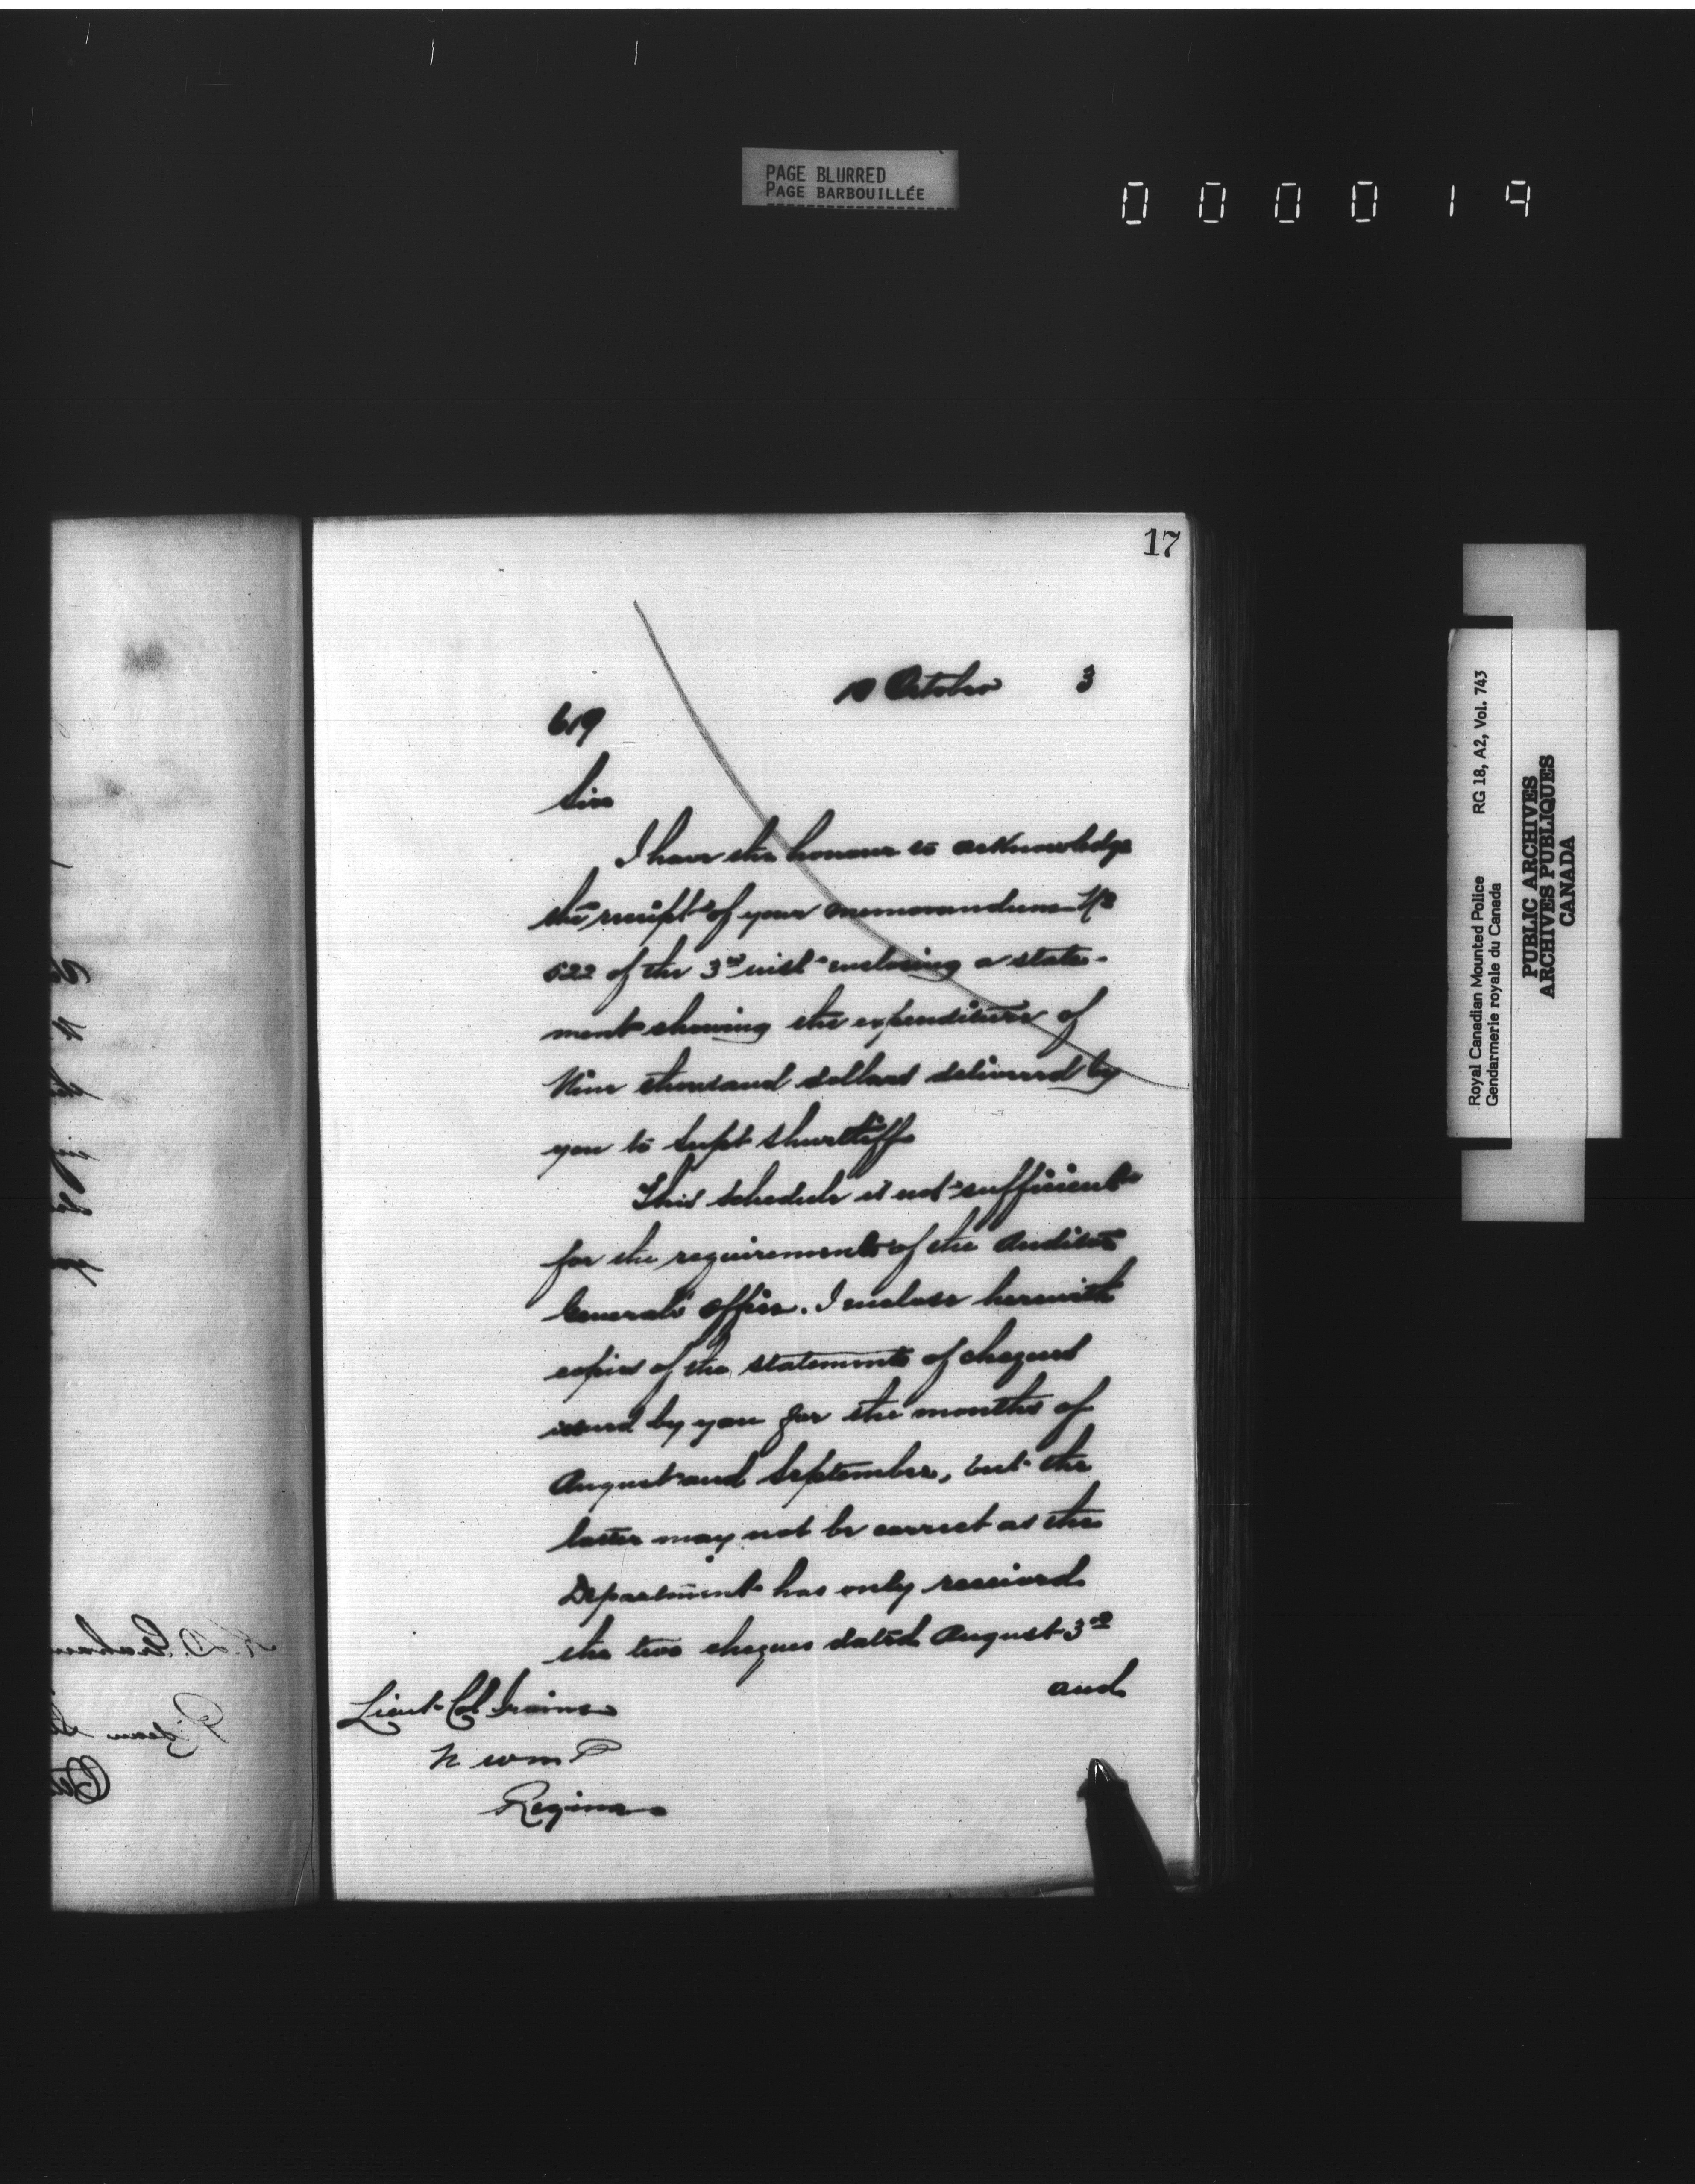 PAGE BLURRED
PAGE BARBOUILLÉE
000019
17
10 October 3
619
Sir
I have the honour to acknowledge
the receipt of your memorandum
622 of the 3rd inst enclosing a state-
ment showing the expenditure of
Nine thousand dollars delivered by
you to Supt Shurtliff
This schedule is not sufficient
for the requirements of the Auditor
General's Office. I enclose herewith
copies of the statements of cheques
issued by you for the months of
August and September, but the
latter may not be correct as the
Department has only received
the two cheques dated August 3rd
and
Lieut Col Irvine
N W M P
Regina
Royal Canadian Mounted Police RG 18, A2, Vol. 743
Gendarmerie royale du Canada
PUBLIC ARCHIVES
ARCHIVES PUBLIQUES
CANADA